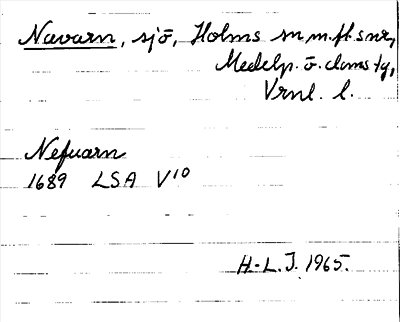 Navarn, sjö, Holms sn m.fl. snr,
Medelp. ö. doms tg,
Vrnl. l.
Nefuarn
1689 LSA V10
H-L.J. 1965.